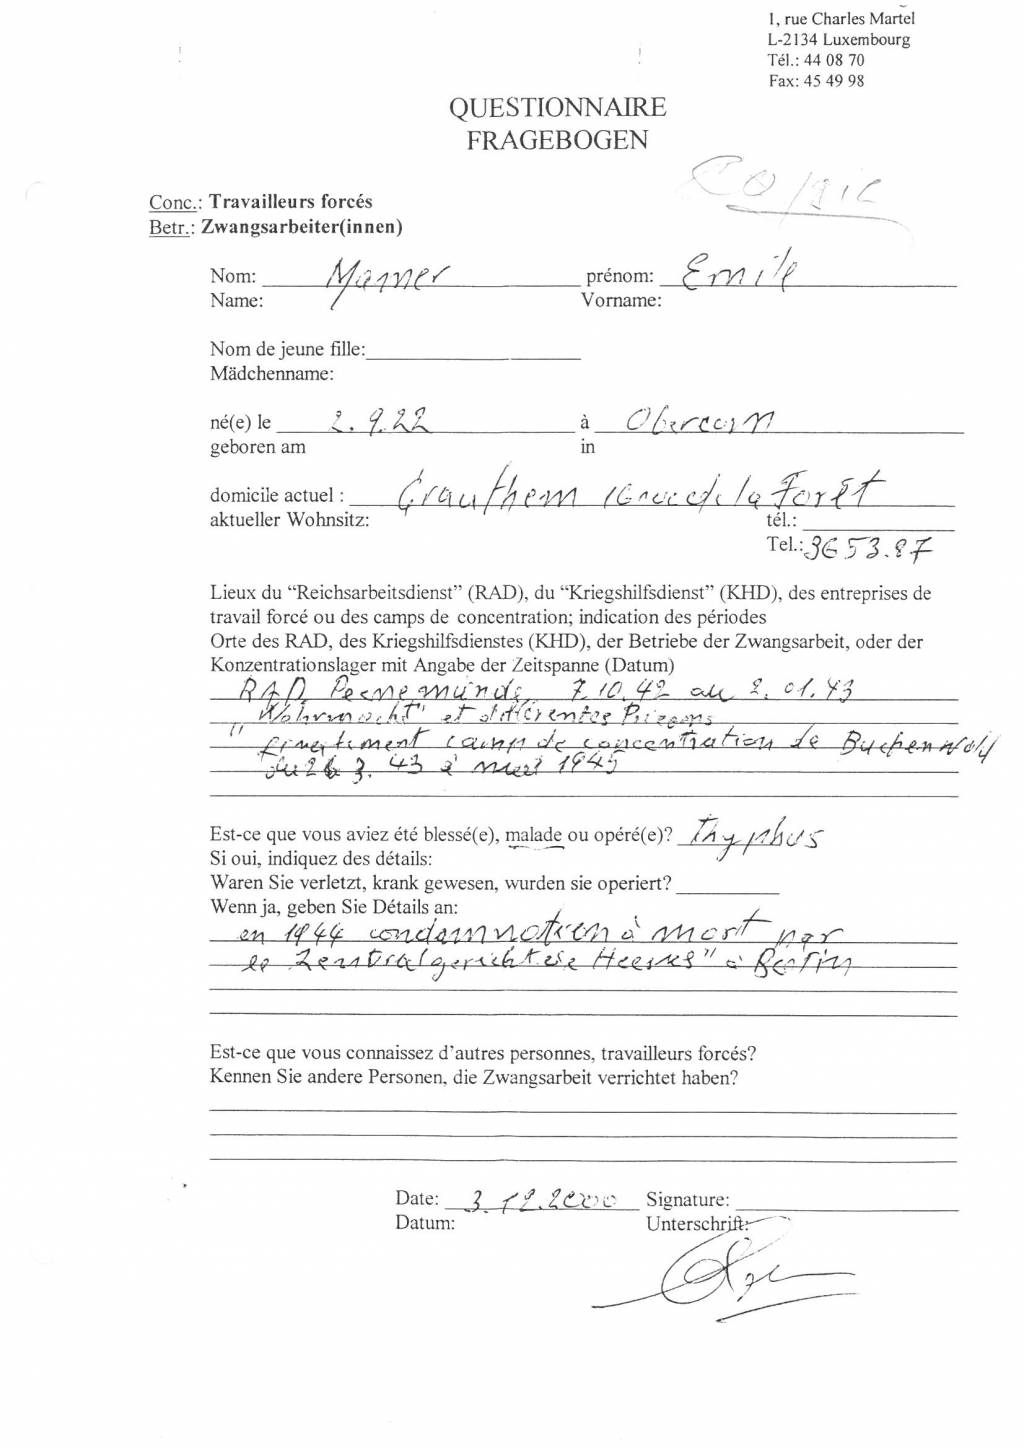 1, rue Charles Martel
L-2134 Luxembourg
Tél.: 44 08 70
Fax: 45 49 98
QUESTIONNAIRE
FRAGEBOGEN
Conc.: Travailleurs forcés
Betr.: Zwangsarbeiter(innen)
Nom: Mamer prénom: Emile
Name: Vorname:
Nom de jeune fille:
Mädchenname:
né(e) le 2.9.22 à Obercorn
geboren am in
domicile actuel : Crauthem de la Forêt
aktueller Wohnsitz: tél.:
Tel.: 36 53.87
Lieux du “Reichsarbeitsdienst” (RAD), du “Kriegshilfsdienst” (KHD), des entreprises de
travail forcé ou des camps de concentration; indication des périodes
Orte des RAD, des Kriegshilfsdienstes (KHD), der Betriebe der Zwangsarbeit, oder der
Konzentrationslager mit Angabe der Zeitspanne (Datum)
RAD Peenemünde 7.10.42 au 2.01.43
"Wehrmacht" et différentes Prisons
camp de concentration de Buchenwald
du 26.3.43 à 1945
Est-ce que vous aviez été blessé(e), malade ou opéré(e)? Thyphus
Si oui, indiquez des détails:
Waren Sie verletzt, krank gewesen, wurden sie operiert?
Wenn ja, geben Sie Détails an:
en 1944 condamnation à mort par
le Zentralgericht des Heeres" à Berlin
Est-ce que vous connaissez d’autres personnes, travailleurs forcés?
Kennen Sie andere Personen, die Zwangsarbeit verrichtet haben?
Date: 3.12.2000 Signature:
Datum: Unterschrift: